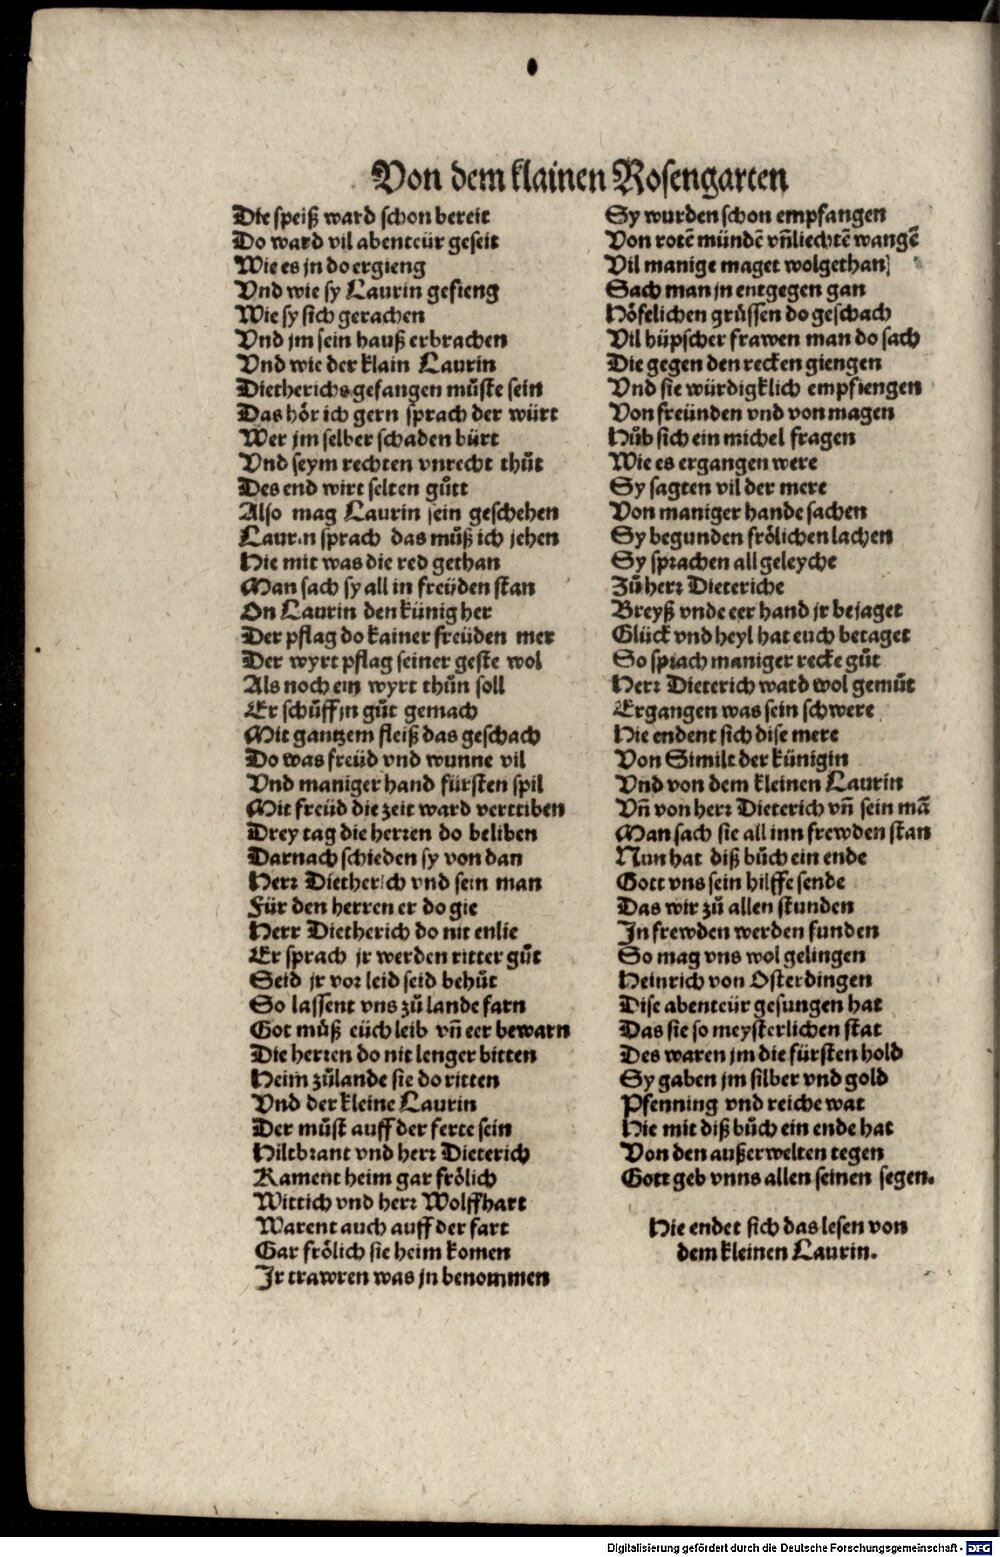 Von dem klainen Rosengarten
Die speiß ward schon bereit
Do ward vil abenteür geseit
Wie es jn do ergieng
Vnd wie sy Laurin gefieng
Wie sy sich gerachen
Vnd jm sein hauß erbrachen
Vnd wie der klain Laurin
Dietherichs gefangen můste sein
Das hör ich gern sprach der würt
Wer jm selber schaden bürt
Vnd seym rechten vnrecht thůt
Des end wirt selten gůtt
Also mag Laurin sein geschehen
Laurin sprach das můß ich jehen
Hie mit was die red gethan
Man sach sy all in freüden stan
On Laurin den künig her
Der pflag do kainer freüden mer
Der wyrt pflag seiner geste wol
Als noch ein wyrt thůn soll
Er schůff jn gůt gemach
Mit gantzem fleiß das geschach
Do was freüd vnd wunne vil
Vnd maniger hand fürsten spil
Mit freüd die zeit ward verttiben
Drey tag die herren do beliben
Darnach schieden sy von dan
Herr Dietherich vnd sein man
Für den herren er do gie
Herr Dietherich do nit enlie
Er sprach jr werden ritter gůt
Seid jr vor leid seid behůt
So lassent vns zů lande farn
Got můß eüch leib vn̄ eer bewarn
Die herren do nit lenger bitten
Heim zůlande sie do ritten
Vnd der kleine Laurin
Der můst auff der ferte sein
Hiltbrant vnd herr Dieterich
Kament heim gar frölich
Wittich vnd herr Wolffhart
Warent auch auff der fart
Gar frölich sie heim komen
Jr trawren was jn benommen
Sy wurden schon empfangen
Von rotē mündē vn̄ liechtē wangē
Vil manige maget wolgethan
Sach man jn entgegen gan
Höfelichen grüssen do geschach
Vil hüpscher frawen man do sach
Die gegen den recken giengen
Vnd sie würdigklich empfiengen
Von freünden vnd von magen
Hůb sich ein michel fragen
Wie es ergangen were
Sy sagten vil der mere
Von maniger hande sachen
Sy begunden frölichen lachen
Sy sprachen all geleyche
Zů herr Dieteriche
Breyß vnde eer hand jr bejaget
Glück vnd heyl hat euch betaget
So sprach maniger recke gůt
Herr Dieterich ward wol gemůt
Ergangen was sein schwere
Hie endent sich dise mere
Von Similt der künigin
Vnd von dem kleinen Laurin
Vn̄ von herr Dieterich vn̄ sein mā
Man sach sie all inn frewden stan
Nun hat diß bůch ein ende
Gott vns sein hilffe sende
Das wir zů allen stunden
In frewden werden funden
So mag vns wol gelingen
Heinrich von Osterdingen
Dise abenteür gesungen hat
Das sie so meysterlichen stat
Des waren jm die fürsten hold
Sy gaben jm silber vnd gold
Pfenning vnd reiche wat
Hie mit diß bůch ein ende hat
Von den außerwelten tegen
Gott geb vnns allen seinen segen.
Hie endet sich das lesen von
dem kleinen Laurin.
Digitalisierung gefördert durch die Deutsche Forschungsgemeinschaft - DFG